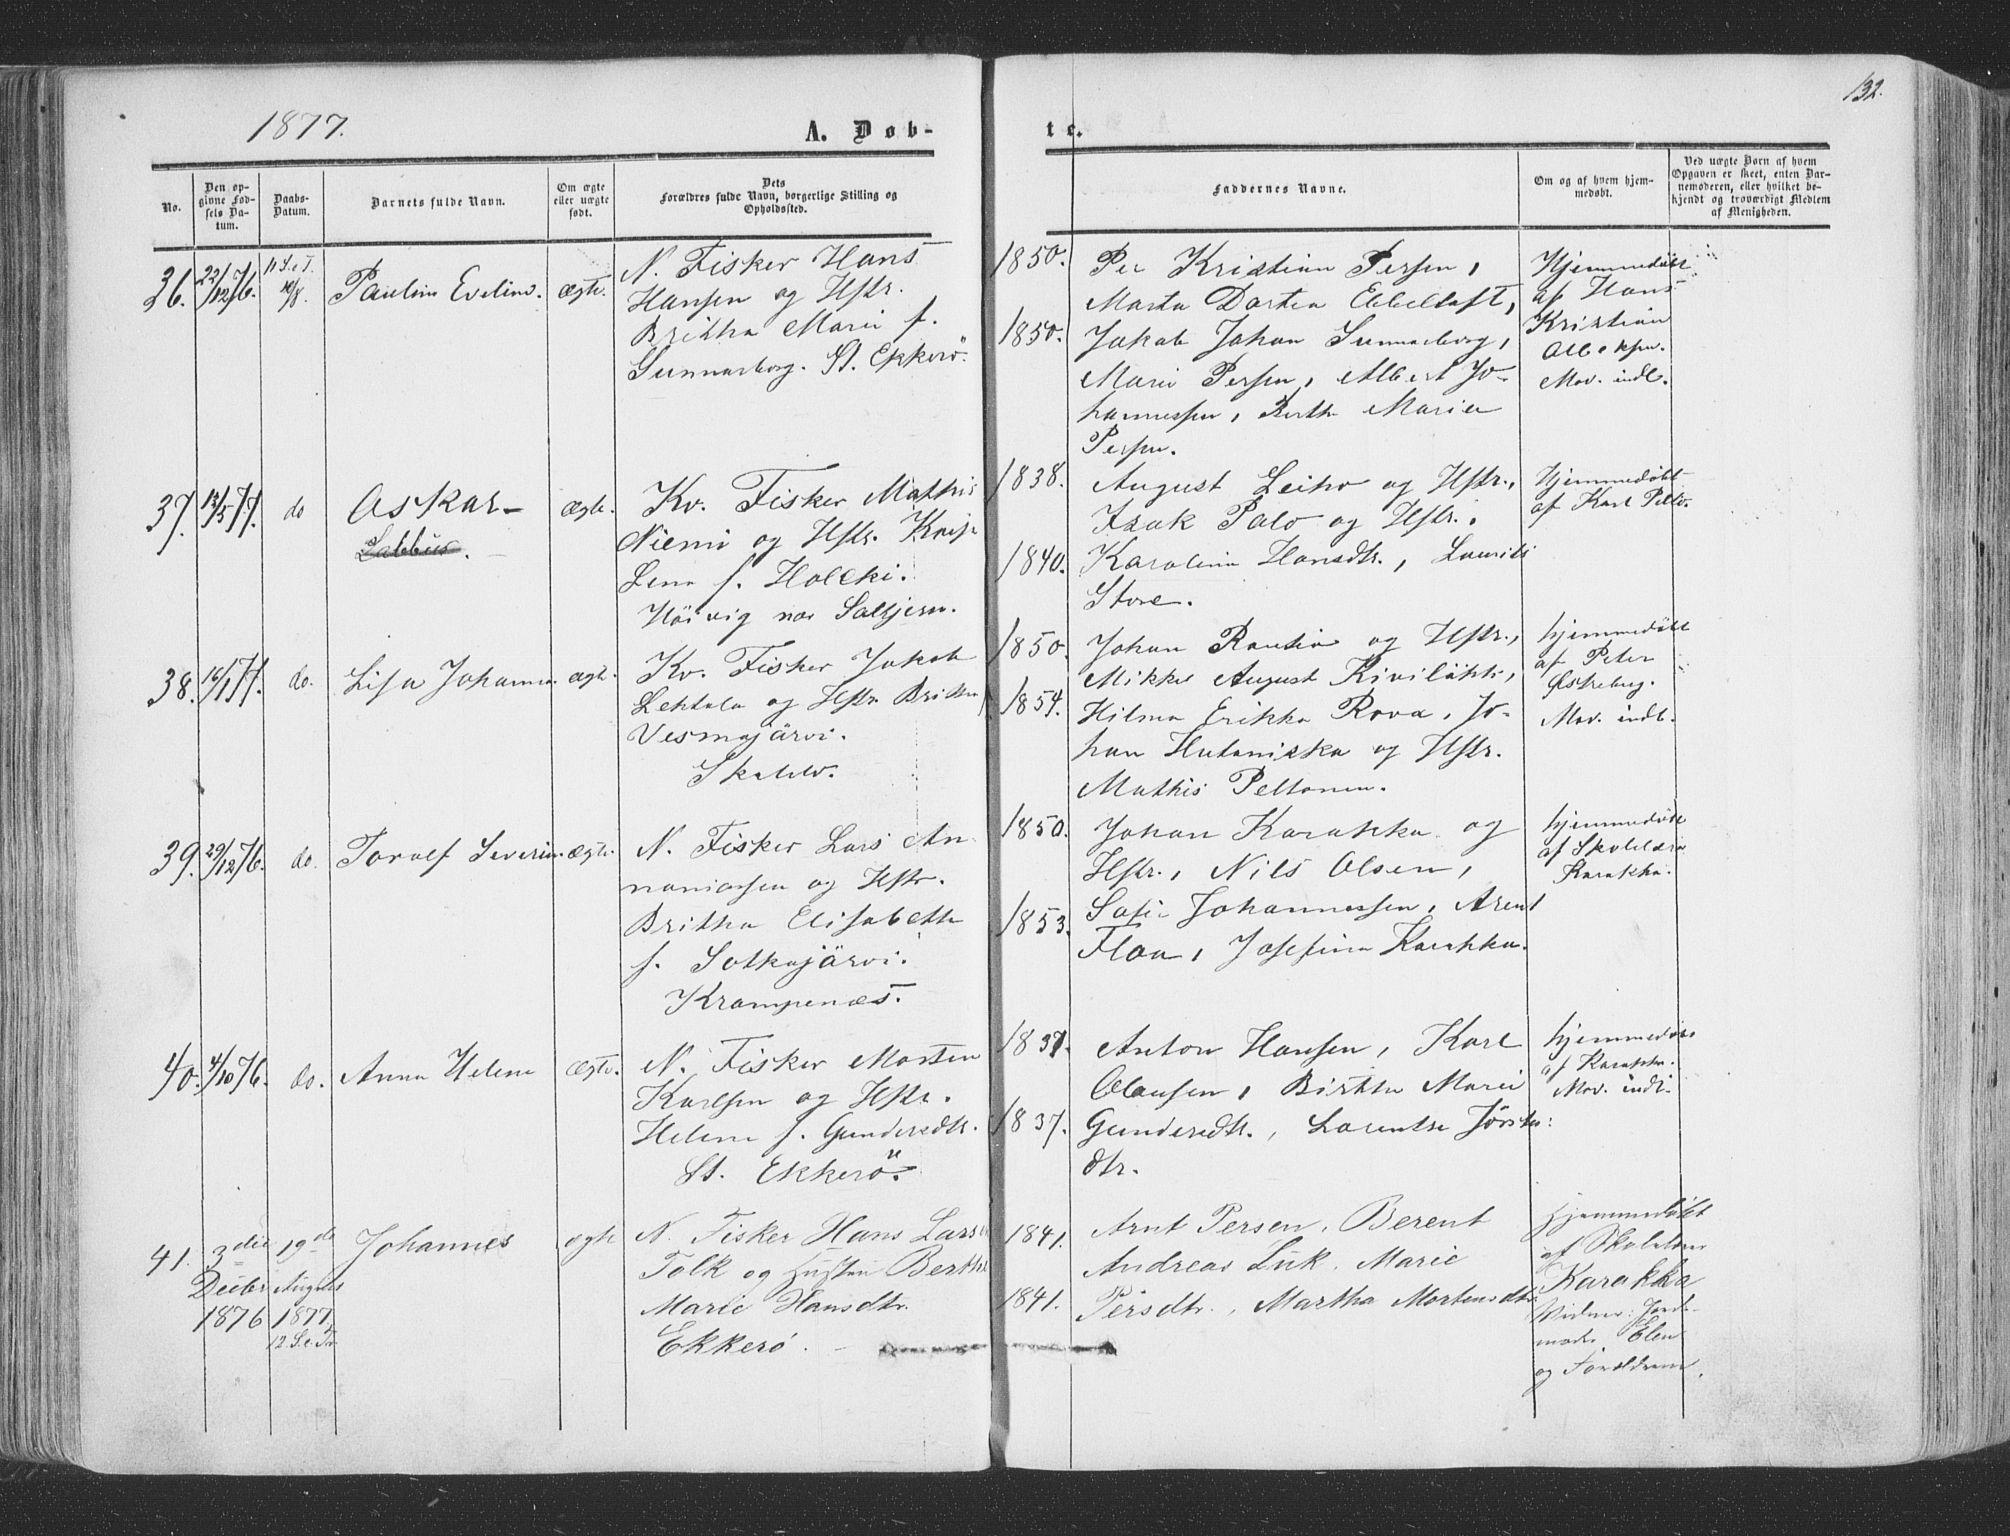 132.
1877.
A. Døb-
te.
No.
Den op-
givne Fød-
sels Da-
tum.
Daabs-
Datum.
Barnets fulde Navn.
Om ægte
eller uægte
født.
Dets
Forældres fulde Navn, borgerlige Stilling og
Opholdssted.
Faddernes Navne.
Om og af hvem hjem-
medøbt.
Ved uægte Børn af hvem
Opgaven er skeet, enten Bar-
nemoderen, eller hvilket be-
kjendt og troværdigt Medlem
af Menigheden.
36.
22/12 76.
11 S.e.T.
Pauline Eveline.
ægte.
N. Fisker Hans
Hansen og Hstr.
Britha Marie f.
Sunnarborg. St. Ekkerö.
1850.
1850.
Per Kristian Persen,
Marta Dortea Ebbeltoft,
Jakob Johan Sunnarborg,
Marie Persen, Albert Jo-
hannessen, Berth Marie
Persen.
Hjemmedöbt
af Hans
Kristian
Mov. indb.
37.
13/5 77.
do
Askar
ægte.
Kv. Fisker Mathis
Niemi og Hstr. Kaisa
Lena f. Holcki.
nær Saltjern.
1838.
1840.
August Leino og Hstr.,
Isak Palo og Hstr.
Karolina Hansdtr., Laurits
Store.
Hjemmedöbt
af Karl Pelto.
38.
16/1 77.
do.
Lisa Johanna
ægte.
Kv. Fisker Jakob
Lehtola og Hstr. Britha
Vesmajärvi.
1850.
1854.
Johan Rautio og Hstr.,
Mikkel August Kivilähti,
Hilma Erikka Rova, Jo-
han Hutaniska og Hstr.
Mathis Peltonen.
hjemmedöbt
af Peter
Mov. indb.
39.
29/12 76.
do.
Toralf Severin
ægte.
N. Fisker Lars An-
naniassen og Hstr.
Britha Elisabeth
f. Sotkajärvi.
Krampenæs.
1850.
1853.
Johan Karakka og
Hstr., Nils Olsen,
Sofie Johannessen, Arent
Flaa, Josefina Karakka.
hjemmedöbt
af Skolelærer
Karakka.
40.
4/10 76.
do.
Anna Helene
ægte.
N. Fisker Morten
Karlsen og Hstr.
Helene f. Gundersdtr.
St. Ekkerö.
1837.
1837.
Anton Hansen, Karl
Olausen, Birthe Marie
Gundersdtr., Lorentse Jörstn:
dtr.
hjemmedöbt
af Karakka.
Mov. indb.
41.
3die
Decbr
1876
19de
August
1877
12 S.e.Tr
Johannes
ægte
N. Fisker Hans Larsen
Folk og Hustru Berthe
Marie Hansdtr.
Ekkerø.
1841.
1841.
Arnt Persen, Berent
Andreas Luk, Marie
Persdtr., Martha Mortensdtr.
Hjemmedøbt
af Skolelærer
Karakka
Vidner: Jord-
moder Elen
og Forældrene.